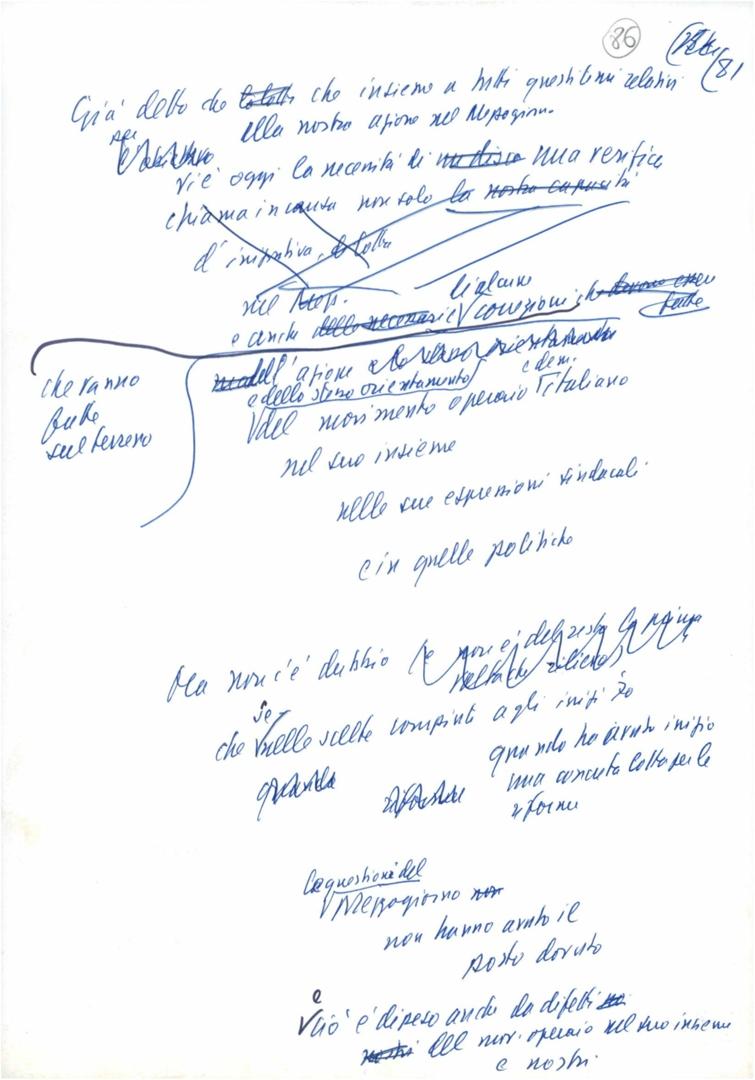 86
81
Già detto che che insieme a tutti questi temi relativi
alla nostra azione nel Mezzogiorno
v'è oggi la necessità di una verifica
chiama in causa non solo la nostra capacità
d'iniziativa,
nel Mezz.
di alcune
e anche delle necessarie correzioni che devono essere
fatte
dell'azione
e dello stesso orientamento
e dem.
del movimento operaio italiano
che vanno
fatte
sul terreno
nel suo insieme
nelle sue espressioni sindacali
e in quelle politiche
Ma non c'è dubbio (e non è del resto la prima
volta che
se
che nelle scelte compiute agli inizi '70
quando ha avuto inizio
una concreta lotta per le
riforme
la questione del
Mezzogiorno non
non hanno avuto il
posto dovuto
e
ciò è dipeso anche da difetti
nostri del mov. operaio nel suo insieme
e nostri.